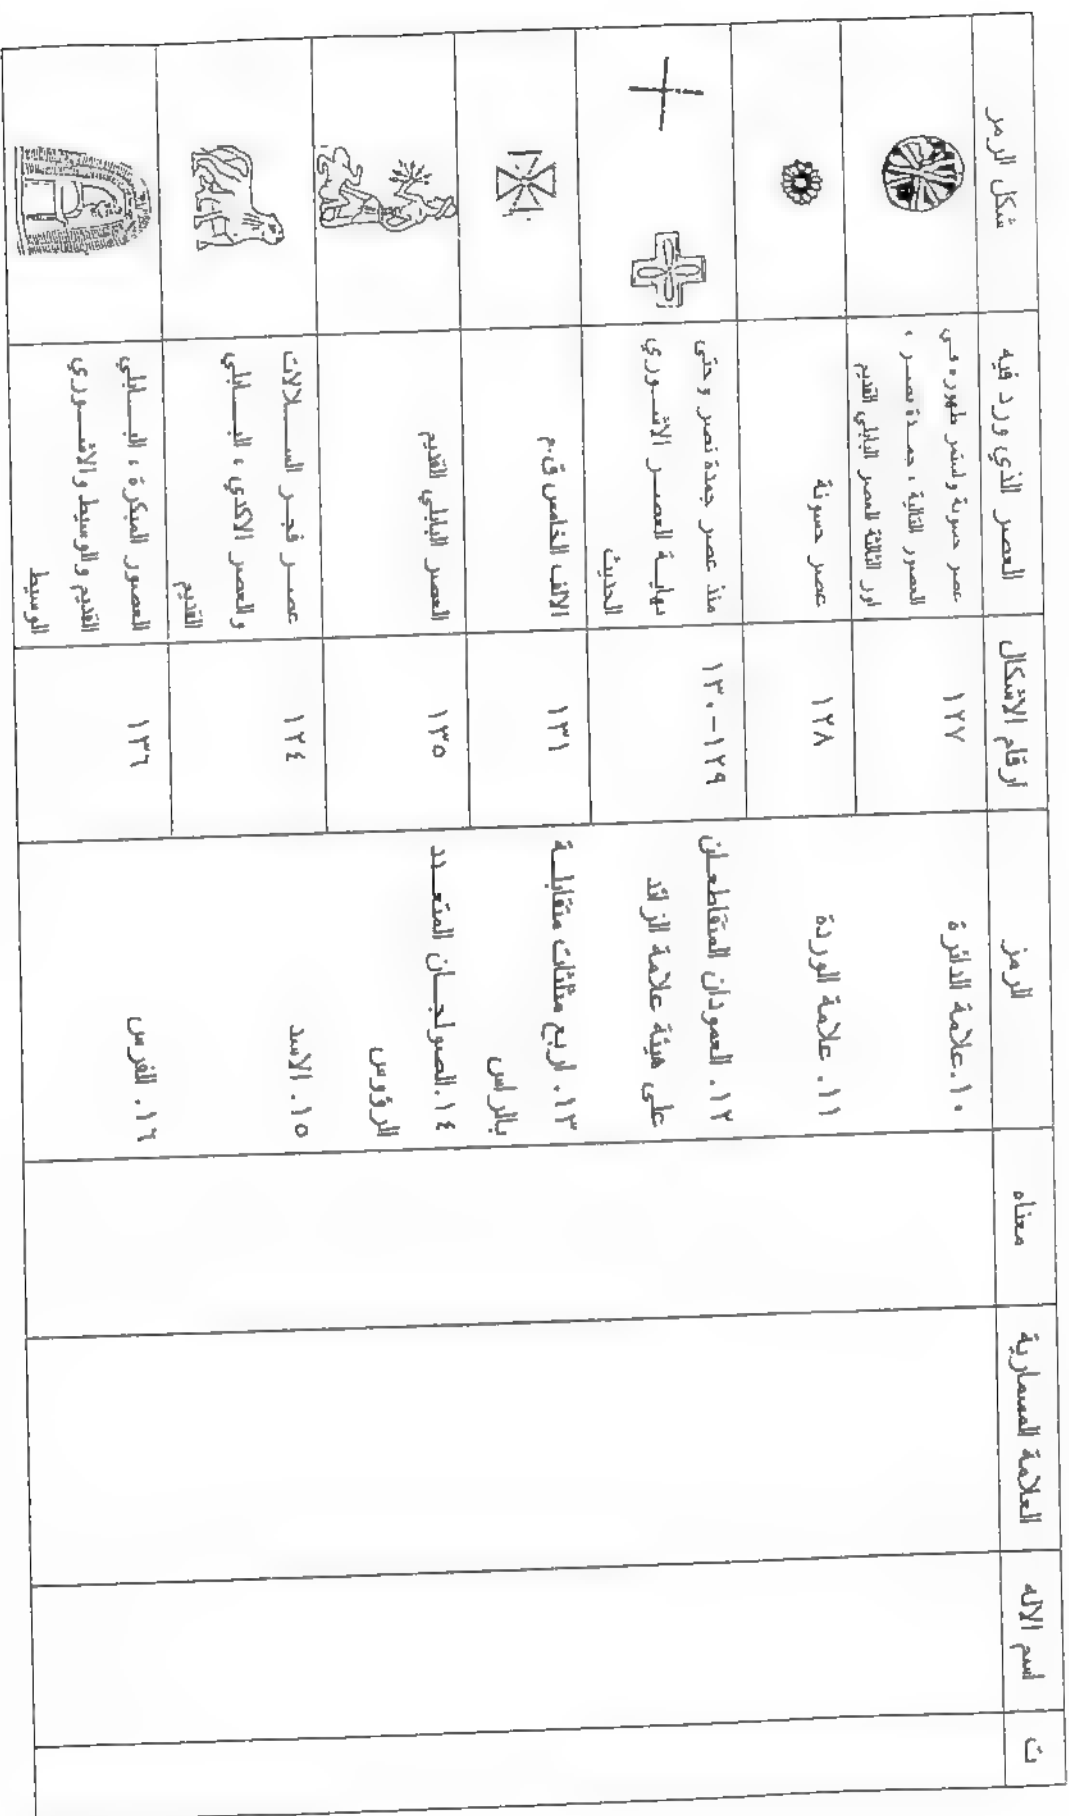 ت
اسم الاله
العلامة المسمارية
معناه
الرمز
ارقام الاشكال
العصر الذي ورد فيه
شكل الرمز
١٠.علامة الدائرة
١٢٧
عصر حسونة واستمر ظهوره في
العصور التالية ، جمدة نصر ،
اور الثالثة العصر البابلي القديم
١١. علامة الوردة
١٢٨
عصر حسونة
١٢. العمودان المتقاطعان
على هيئة علامة الزائد
١٢٩-١٣٠
منذ عصر جمدة نصر وحتى
نهاية العصر الاشوري
الحديث
١٣. اربع مثلثات متقابلة
بالراس
١٣١
الالف الخامس ق.م
١٤.الصولجان المتعدد
الرؤوس
١٣٥
العصر البابلي القديم
١٥. الاسد
١٢٤
عصر فجر السلالات
والعصر الاكدي ، البابلي
القديم
١٦. الفرس
١٣٦
العصور المبكرة ، البابلي
القديم والوسيط والاشوري
الوسيط